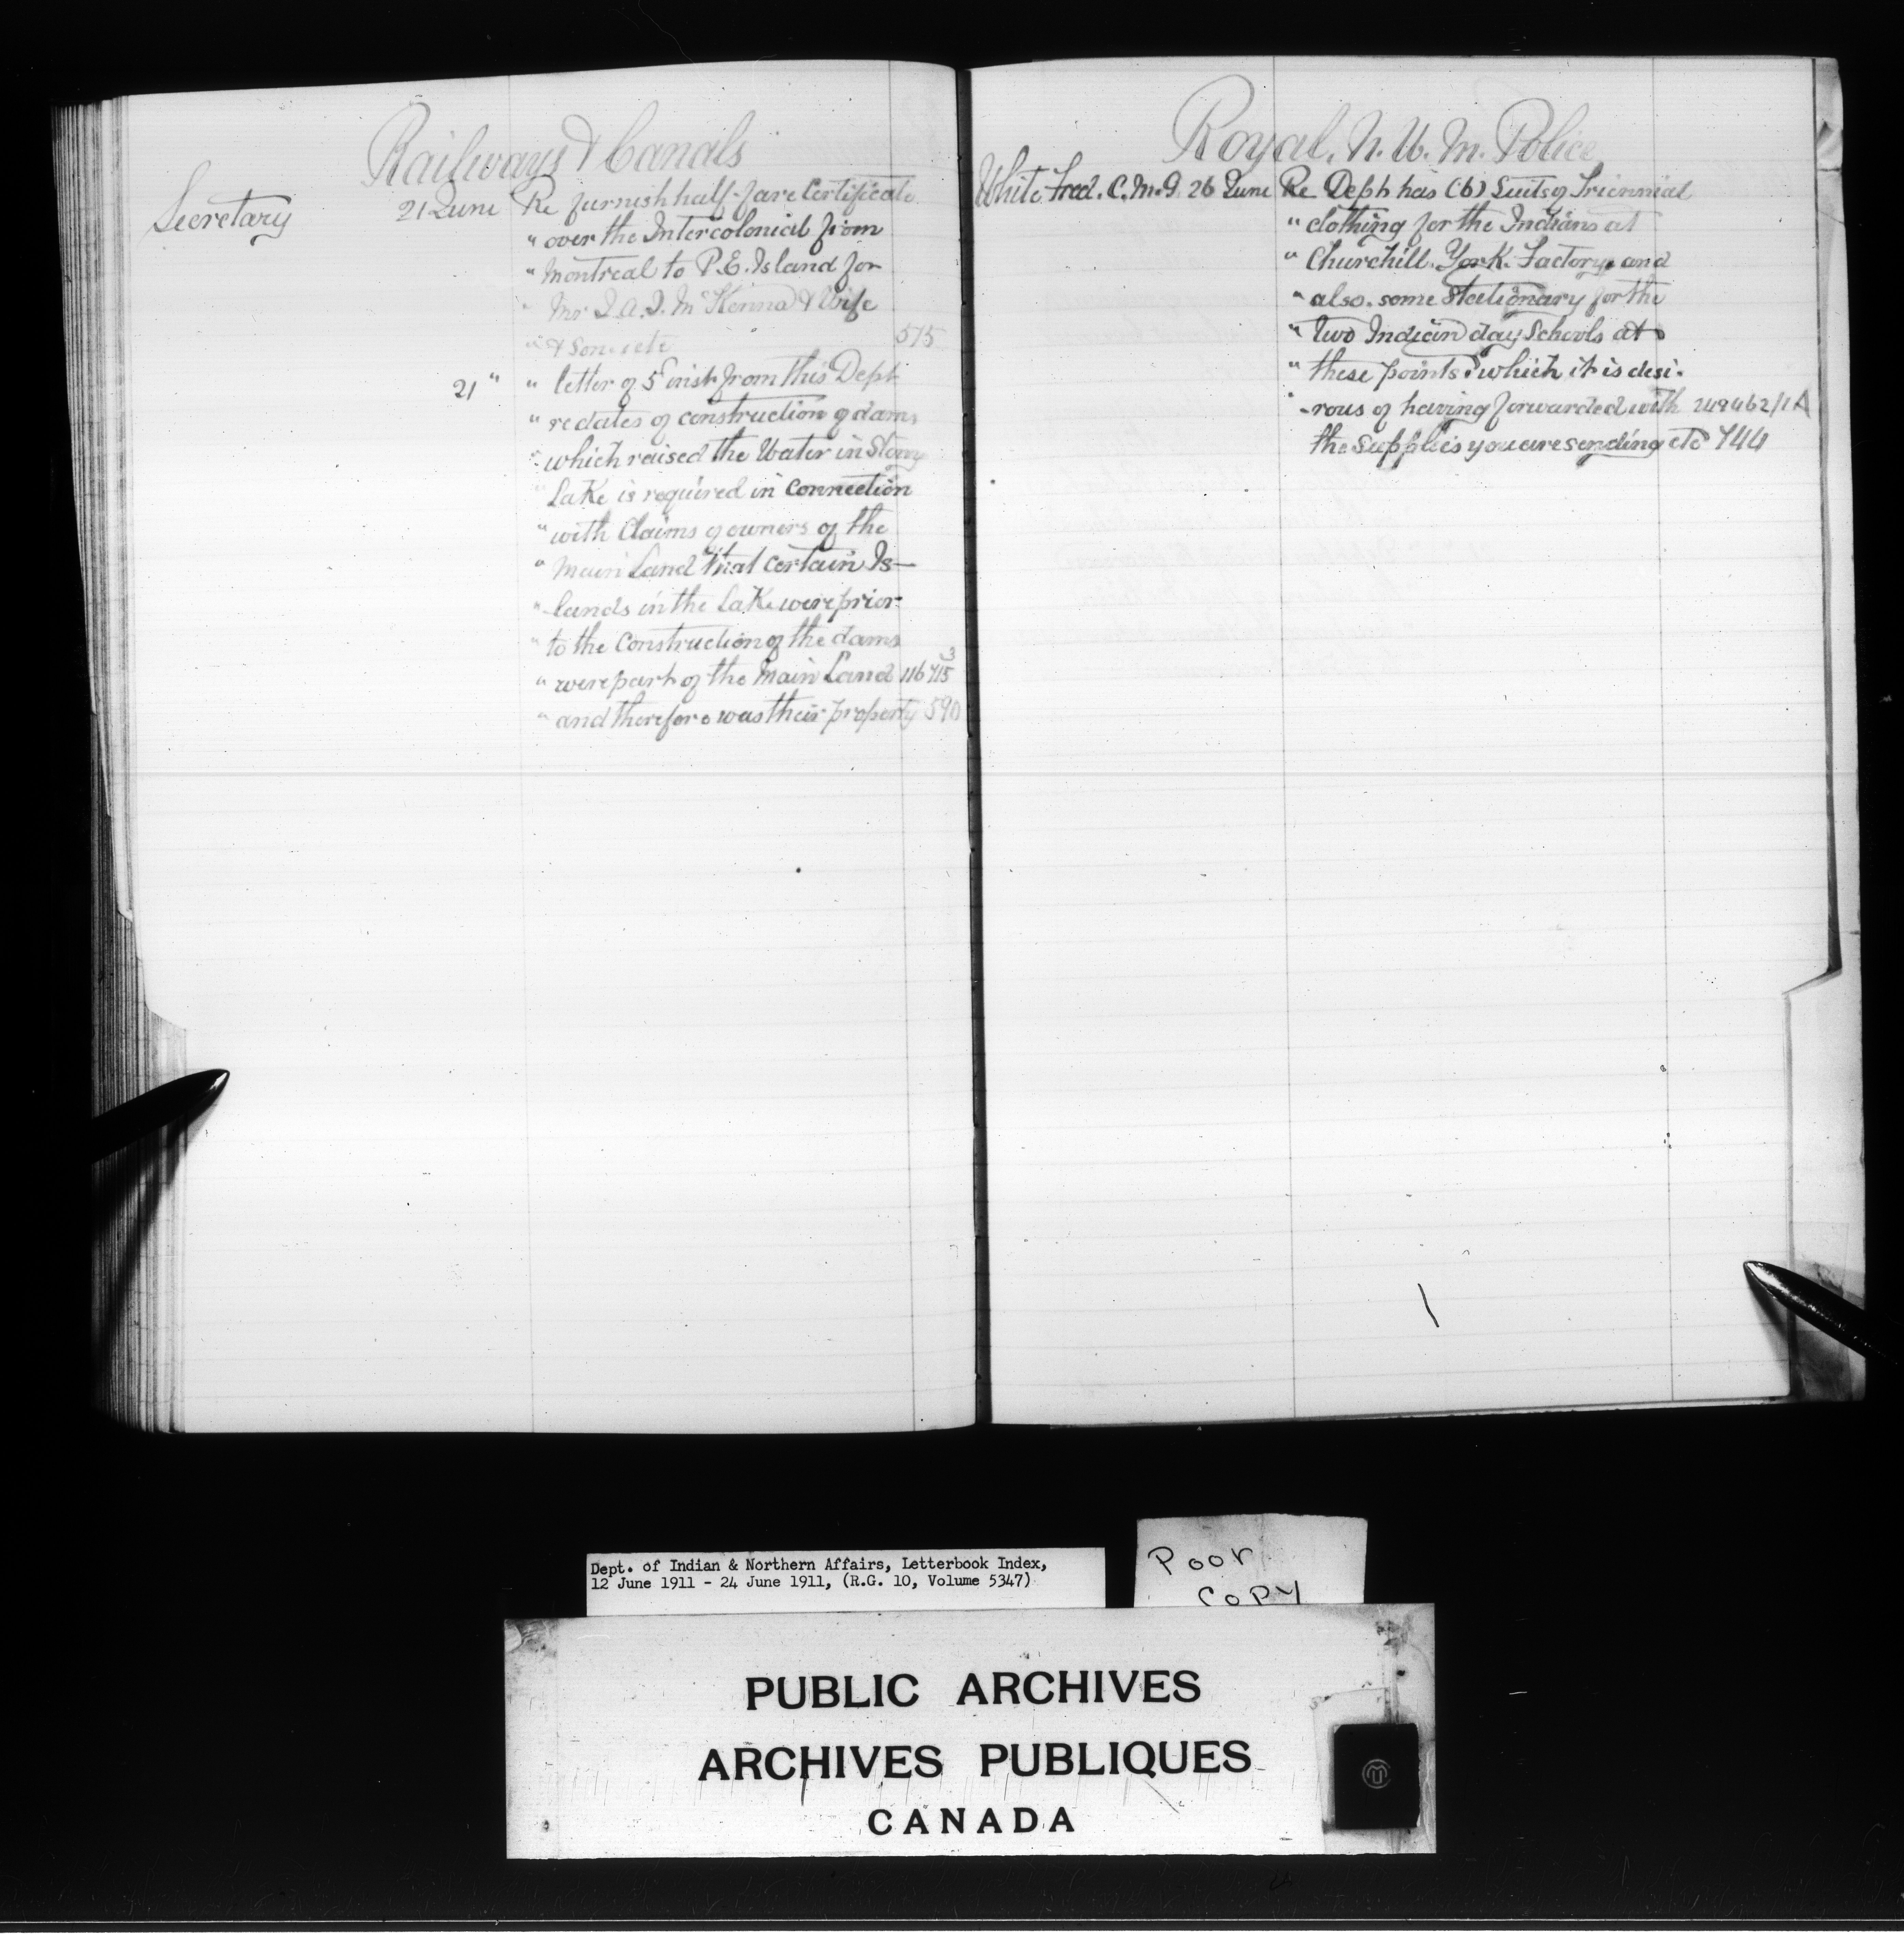 Railways & Canals
Secretary 21 June Re furnish half-fare Certificate
" over the Intercolonial from
" Montreal to P.E. Island for
" Mr J.A.J. McKenna & Wife
" & Son etc 575
21 " " letter of 5th inst from this Dept
" re dates of construction of dams
" which raised the Water in Stony
" Lake is required in connection
" with Claims of owners of the
" Main Land that certain Is-
" lands in the Lake were prior
" to the Construction of the dams
" were part of the Main Land 116415 3
" and therefore was their property 590
Royal. N. W. M. Police
White Fred. C.M.G. 26 June Re Dept has (6) Suits of Triennial
" clothing for the Indians at
" Churchill. York. Factory. and
" also. some Stationary for the
" two Indian day Schools at
" these points. which it is desi-
" -rous of having forwarded with 249462/1A
the Supplies you are sending etc 744
Dept. of Indian & Northern Affairs, Letterbook Index,
12 June 1911 - 24 June 1911, (R.G. 10, Volume 5347)
Poor
Copy
PUBLIC ARCHIVES
ARCHIVES PUBLIQUES
CANADA